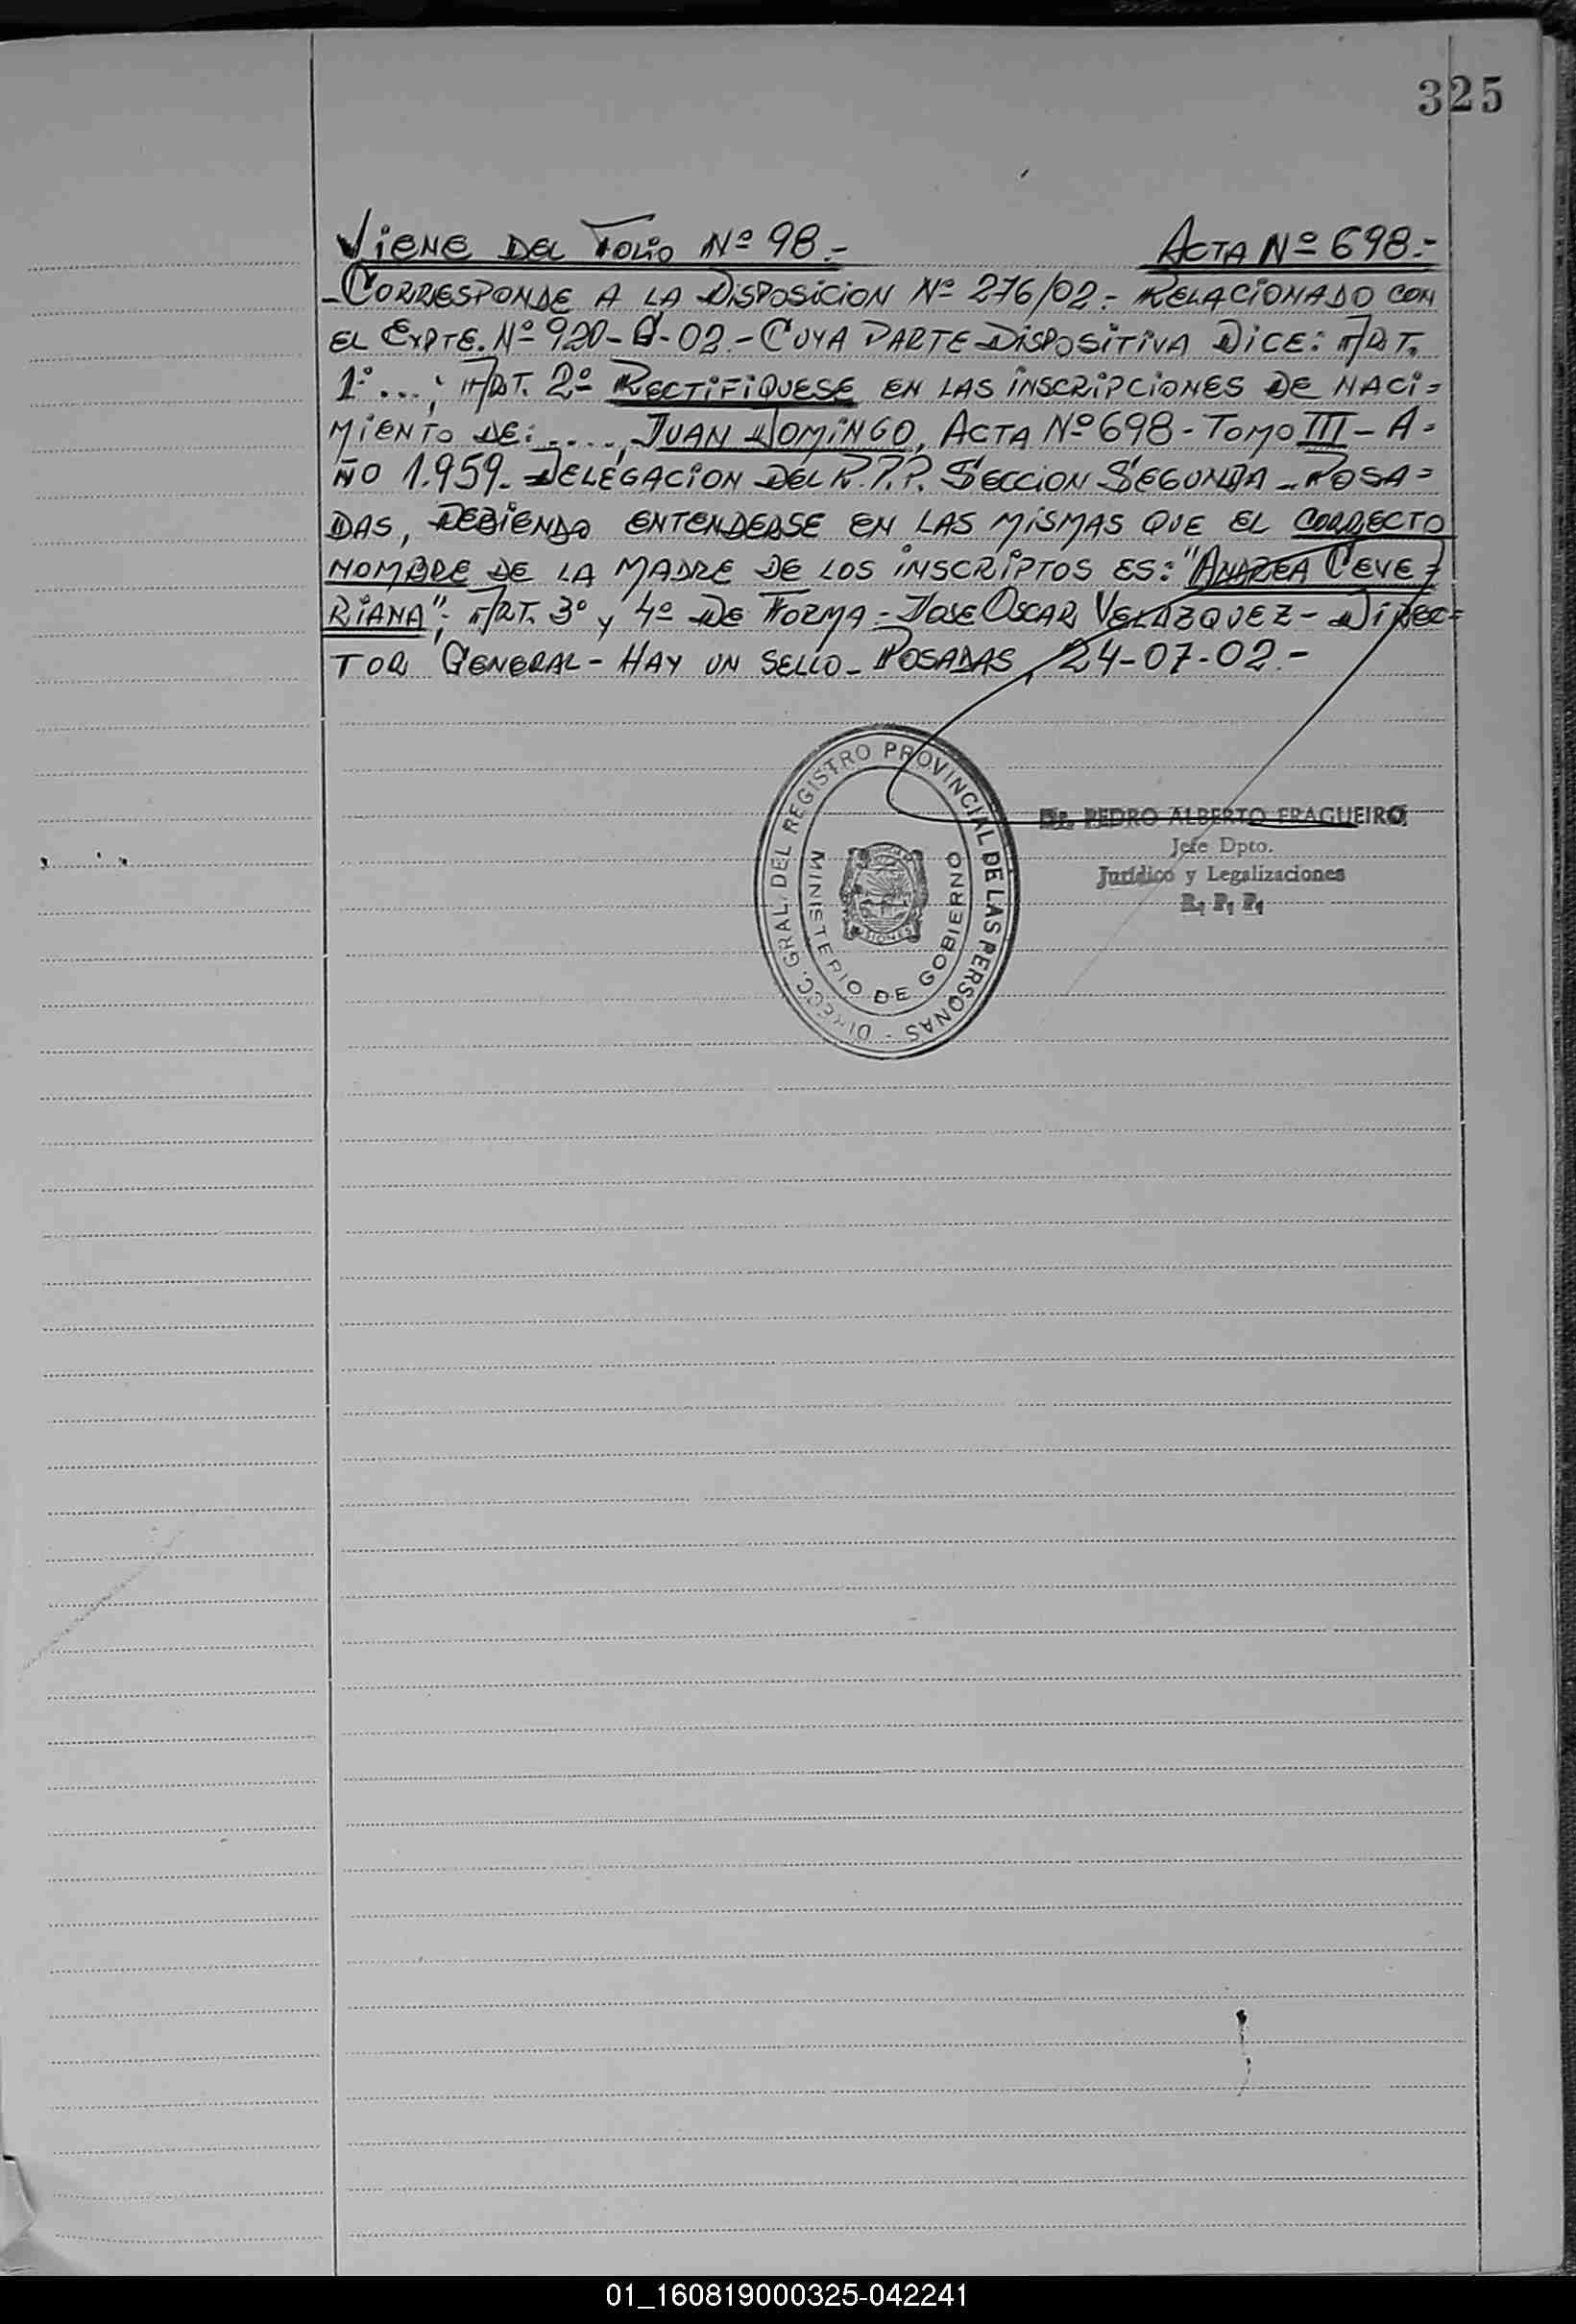 325
VIENE DEL FOLIO Nº 98.- ACTA Nº 698.-
-CORRESPONDE A LA DISPOSICION Nº 276/02.- RELACIONADO CON
EL EXPTE. Nº 920-G-02.- CUYA PARTE DISPOSITIVA DICE: ART.
1º ...; ART. 2º RECTIFIQUESE EN LAS INSCRIPCIONES DE NACI=
MIENTO DE: ...., JUAN DOMINGO, ACTA Nº 698 - TOMO III - A=
ÑO 1.959.- DELEGACION DEL R.P.P. SECCION SEGUNDA - POSA=
DAS, DEBIENDO ENTENDERSE EN LAS MISMAS QUE EL CORRECTO
NOMBRE DE LA MADRE DE LOS INSCRIPTOS ES: "ANDREA CEVE=
RIANA"; ART. 3º y 4º DE FORMA - JOSE OSCAR VELAZQUEZ - DIREC=
TOR GENERAL - HAY UN SELLO - POSADAS, 24-07-02.-
DIRECC. GRAL. DEL REGISTRO PROVINCIAL DE LAS PERSONAS -
MINISTERIO DE GOBIERNO
MISIONES
Dr. PEDRO ALBERTO FRAGUEIRO
Jefe Dpto.
Jurídico y Legalizaciones
R. P. P.
01_160819000325-042241